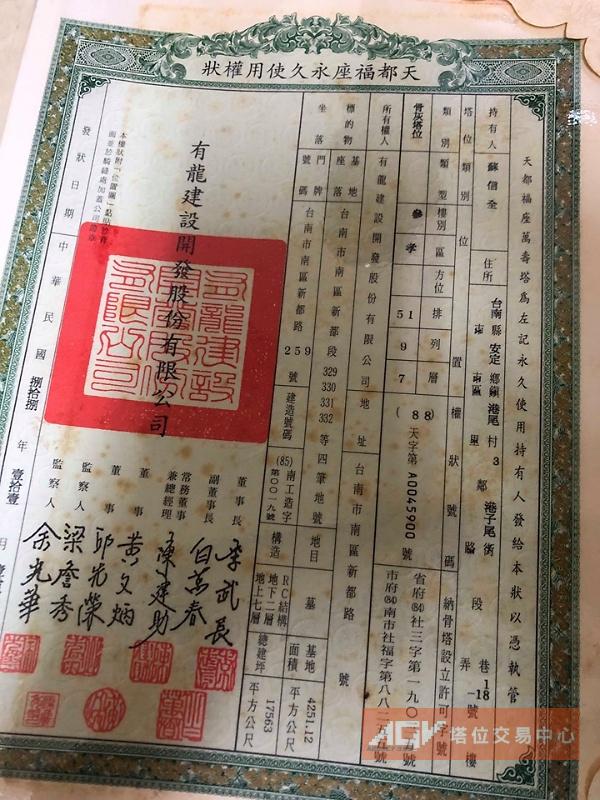 天都福座永久使用權狀
天都福座萬壽塔為左記永久使用持有人發給本狀以憑執管
持有人 蘇信全 住所 台南縣 安定 鄉鎮 港尾 村 3 鄰 港子尾街 路 段 巷 弄 1-18 號 樓
塔位類別 位置 權狀號碼 納骨塔設立許可字號
類別 類型 樓別 區 方位 排 列 層
骨灰塔位 參 孝 51 9 7 (88)天字第A0045900號
省府(84)社三字第一九〇
市府(84)南市社福字第八八二
所有權人 有龍建設開發股份有限公司 地址 台南市南區新都路 號
標的物 基地座落 台南市南區新都段 329 330 331 332 等四筆地號 地目 墓 基地面積 4251.12 平方公尺
坐落 門牌號碼 台南市南區新都路259號 建造號碼 (85)南工造字第〇〇一九號 構造 RC結構 地下二層 地上七層 總建坪 17563 平方公尺
有龍建設開發股份有限公司
董事長 李武長
副董事長 白萬春
常務董事兼總經理 陳建助
董事 黃文炳
董事 邱光榮
監察人 梁詹秀
監察人 余光華
發狀日期 中華民國 捌拾捌 年 壹拾壹 月
AGV 塔位交易中心